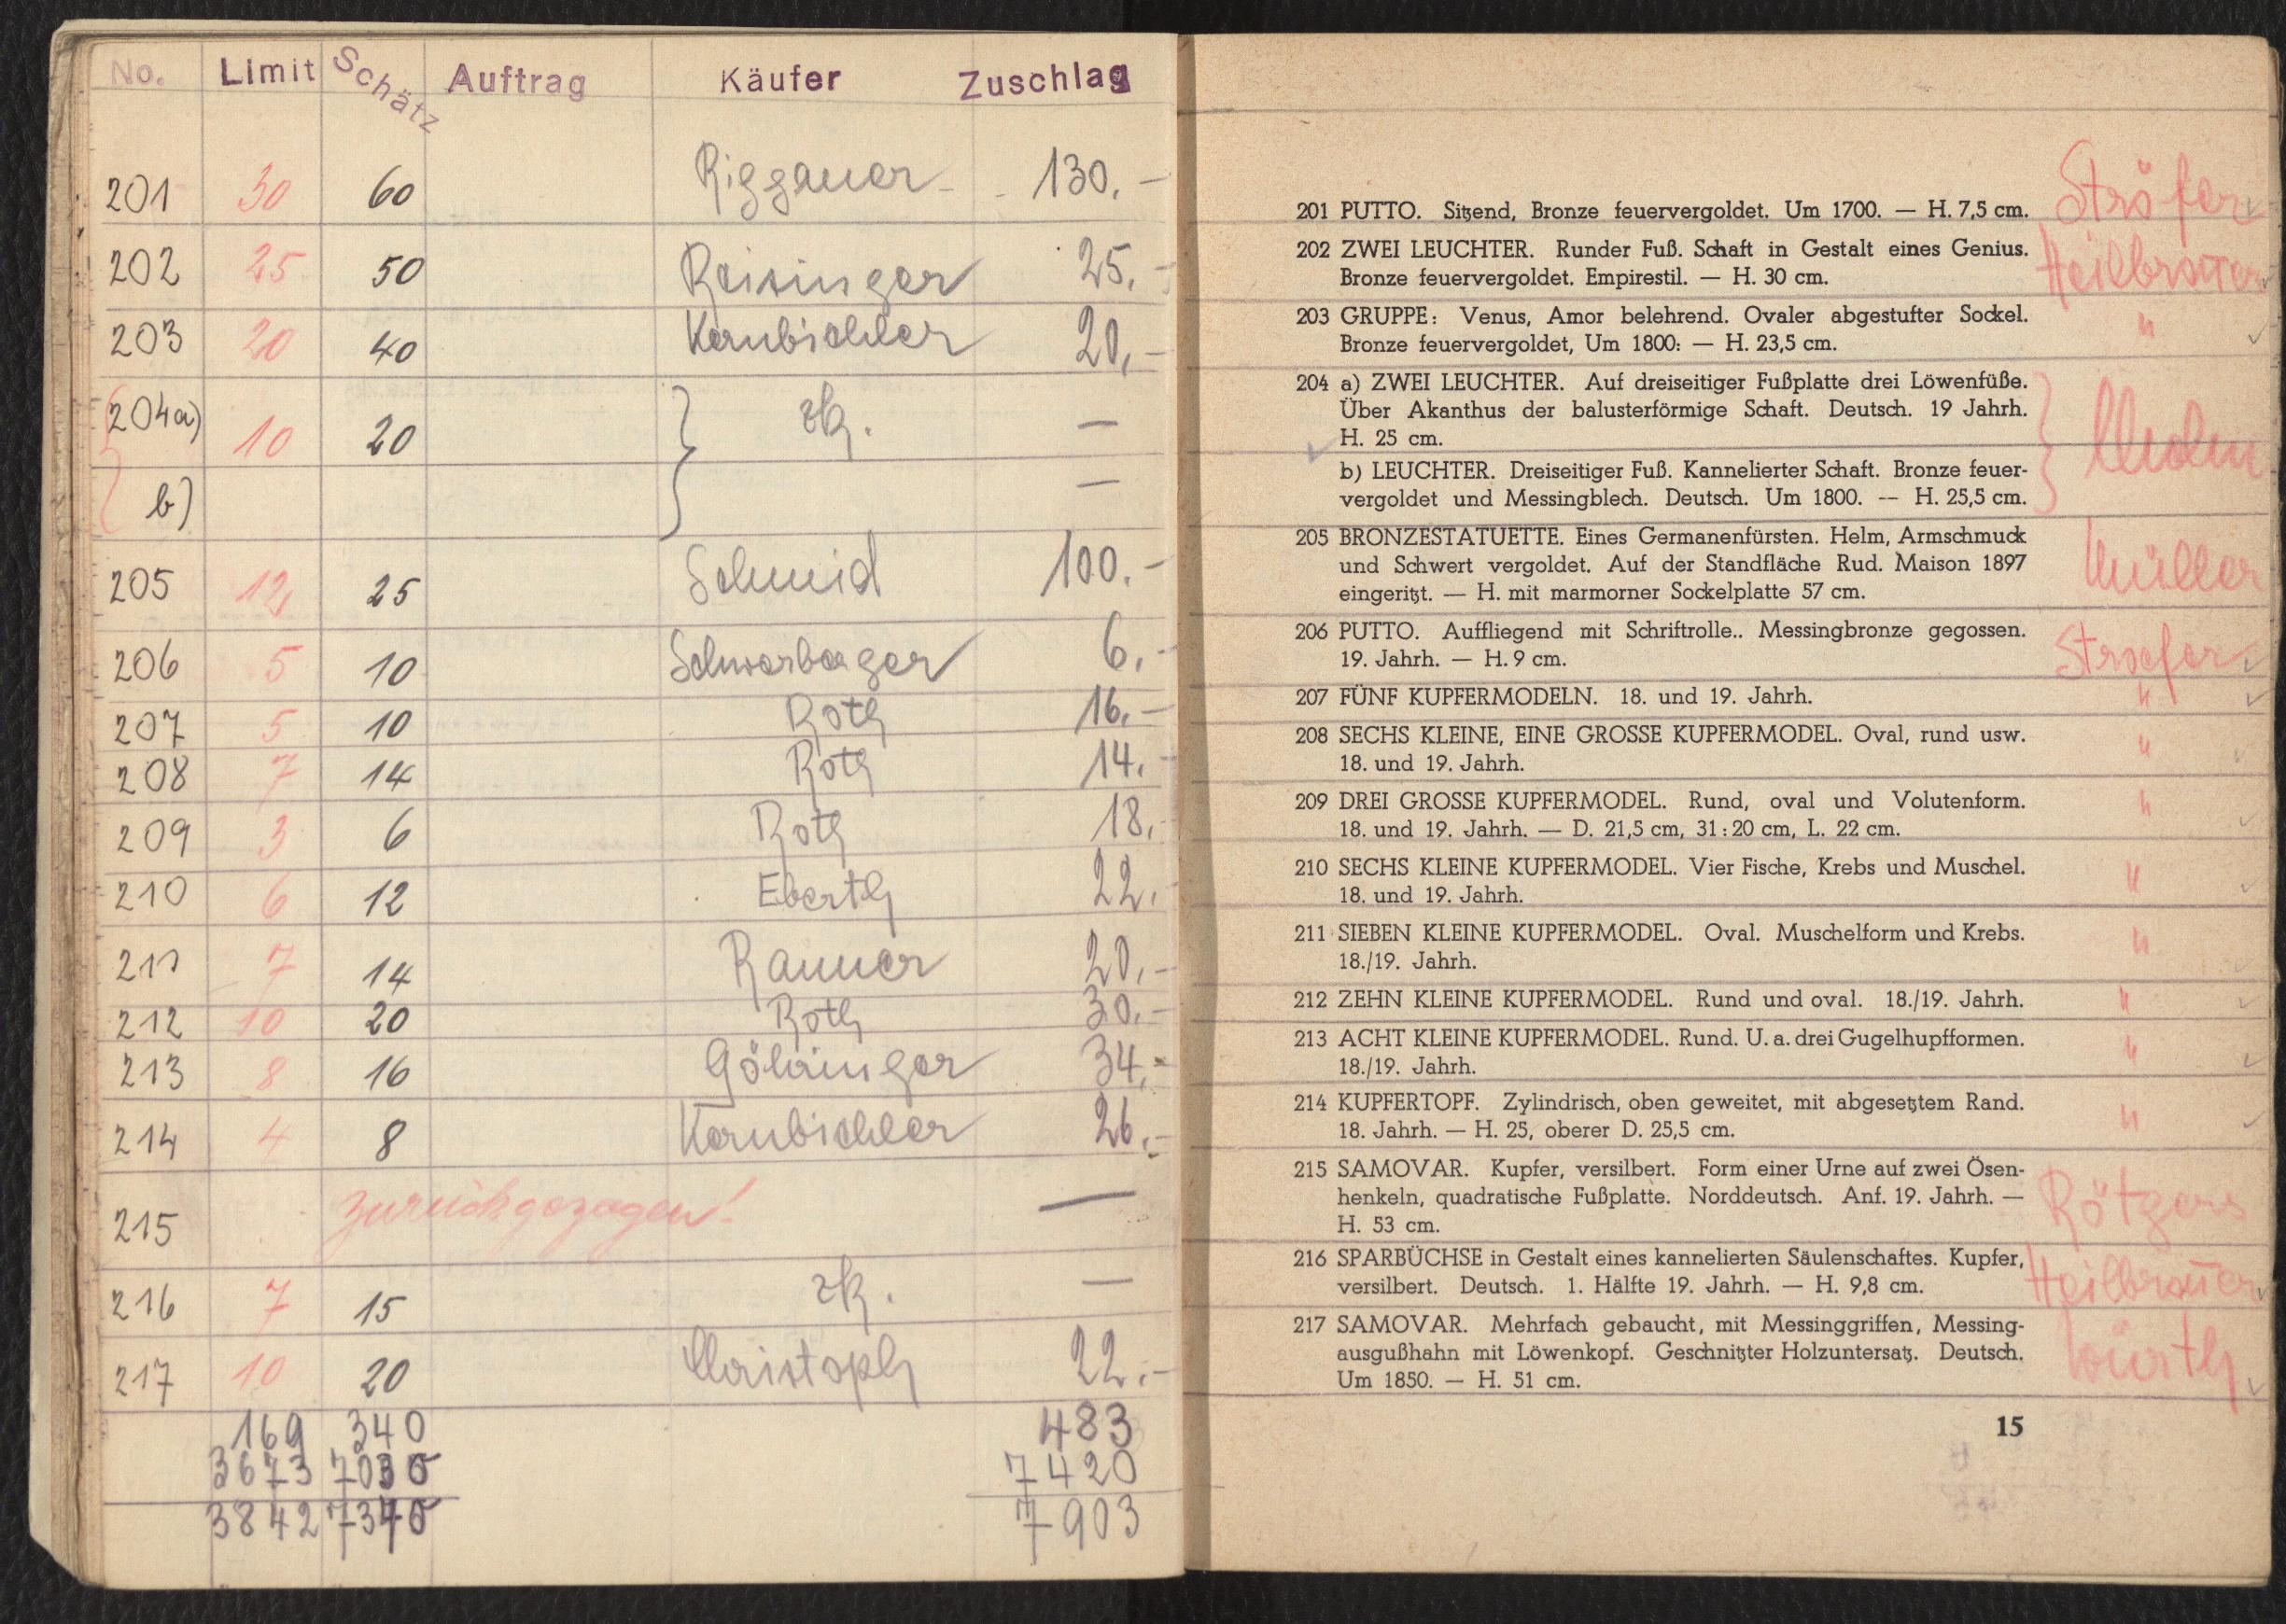 No. Limit Schätz Auftrag Käufer Zuschlag
201 30 60 Riggauer 130.—
202 25 50 Reisinger 25.—
203 20 40 Kernbichler 20.—
204a) 10 20 zk. —
b) —
205 12 25 Schmid 100.—
206 5 10 Schwarberger 6.—
207 5 10 Roth 16.—
208 7 14 Roth 14.
209 3 6 Roth 18.
210 6 12 Eberth 22.
211 7 14 Ranner 20.—
212 10 20 Roth 30.—
213 8 16 Göhringer 34.—
214 4 8 Kernbichler 26.—
215 zurückgezogen! —
216 7 15 zk. —
217 10 20 Christoph 22.—
169 340 483
3673 7030 7420
3842 7370 7903
201 PUTTO. Sitzend, Bronze feuervergoldet. Um 1700. — H. 7,5 cm. Ströfer
202 ZWEI LEUCHTER. Runder Fuß. Schaft in Gestalt eines Genius. Heilbronner
Bronze feuervergoldet. Empirestil. — H. 30 cm.
203 GRUPPE: Venus, Amor belehrend. Ovaler abgestufter Sockel. "
Bronze feuervergoldet, Um 1800: — H. 23,5 cm.
204 a) ZWEI LEUCHTER. Auf dreiseitiger Fußplatte drei Löwenfüße.
Über Akanthus der balusterförmige Schaft. Deutsch. 19 Jahrh.
H. 25 cm.
b) LEUCHTER. Dreiseitiger Fuß. Kannelierter Schaft. Bronze feuer-
vergoldet und Messingblech. Deutsch. Um 1800. -- H. 25,5 cm.
205 BRONZESTATUETTE. Eines Germanenfürsten. Helm, Armschmuck
und Schwert vergoldet. Auf der Standfläche Rud. Maison 1897 Müller
eingeritzt. — H. mit marmorner Sockelplatte 57 cm.
206 PUTTO. Auffliegend mit Schriftrolle.. Messingbronze gegossen.
19. Jahrh. — H. 9 cm. Stroefer
207 FÜNF KUPFERMODELN. 18. und 19. Jahrh. "
208 SECHS KLEINE, EINE GROSSE KUPFERMODEL. Oval, rund usw. "
18. und 19. Jahrh.
209 DREI GROSSE KUPFERMODEL. Rund, oval und Volutenform. "
18. und 19. Jahrh. — D. 21,5 cm, 31:20 cm, L. 22 cm.
210 SECHS KLEINE KUPFERMODEL. Vier Fische, Krebs und Muschel. "
18. und 19. Jahrh.
211 SIEBEN KLEINE KUPFERMODEL. Oval. Muschelform und Krebs. "
18./19. Jahrh.
212 ZEHN KLEINE KUPFERMODEL. Rund und oval. 18./19. Jahrh. "
213 ACHT KLEINE KUPFERMODEL. Rund. U. a. drei Gugelhupfformen. "
18./19. Jahrh.
214 KUPFERTOPF. Zylindrisch, oben geweitet, mit abgesetztem Rand. "
18. Jahrh. — H. 25, oberer D. 25,5 cm.
215 SAMOVAR. Kupfer, versilbert. Form einer Urne auf zwei Ösen-
henkeln, quadratische Fußplatte. Norddeutsch. Anf. 19. Jahrh. — Rötgers
H. 53 cm.
216 SPARBÜCHSE in Gestalt eines kannelierten Säulenschaftes. Kupfer,
versilbert. Deutsch. 1. Hälfte 19. Jahrh. — H. 9,8 cm. Heilbronner
217 SAMOVAR. Mehrfach gebaucht, mit Messinggriffen, Messing-
ausgußhahn mit Löwenkopf. Geschnitzter Holzuntersatz. Deutsch. Würth
Um 1850. — H. 51 cm.
15